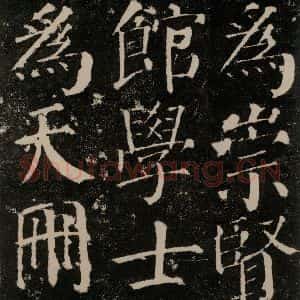 為崇賢
館學士
為天冊
Shufawang.CN